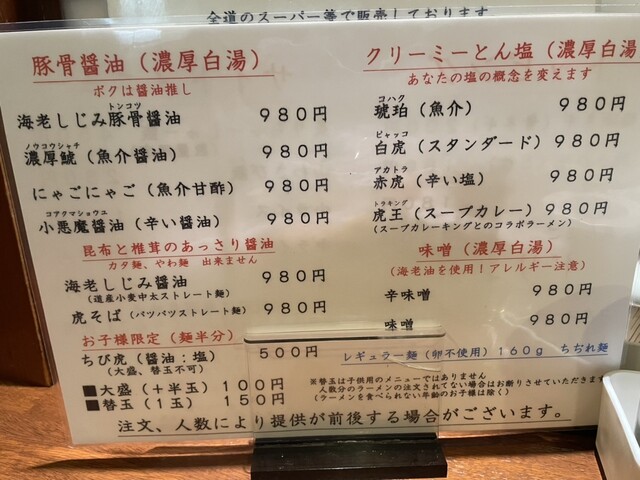 全道のスーパー等で販売しております
豚骨醤油（濃厚白湯）
ボクは醤油推し
トンコツ
海老しじみ豚骨醤油 980円
ノウコウシャチ
濃厚鯱（魚介醤油） 980円
にゃごにゃご（魚介甘酢） 980円
コアクマショウユ
小悪魔醤油（辛い醤油） 980円
昆布と椎茸のあっさり醤油
カタ麺、やわ麺 出来ません
海老しじみ醤油 980円
（道産小麦中太ストレート麺）
虎そば（パツパツストレート麺） 980円
お子様限定（麺半分）
ちび虎（醤油：塩） 500円
（大盛、替玉不可）
■大盛（＋半玉） 100円
■替玉（1玉） 150円
クリーミーとん塩（濃厚白湯
あなたの塩の概念を変えます
コハク
琥珀（魚介） 980円
ビャッコ
白虎（スタンダード） 980円
アカトラ
赤虎（辛い塩） 980円
トラキング
虎王（スープカレー） 980円
（スープカレーキングとのコラボラーメン）
味噌（濃厚白湯）
（海老油を使用！アレルギー注意）
辛味噌 980円
味噌 980円
レギュラー麺（卵不使用）160g ちぢれ麺
※替玉は子供用のメニューではありません
人数分のラーメンの注文されてない場合はお断りさせていただきます
（ラーメンを食べられない年齢のお子様は除く）
注文、人数により提供が前後する場合がございます。